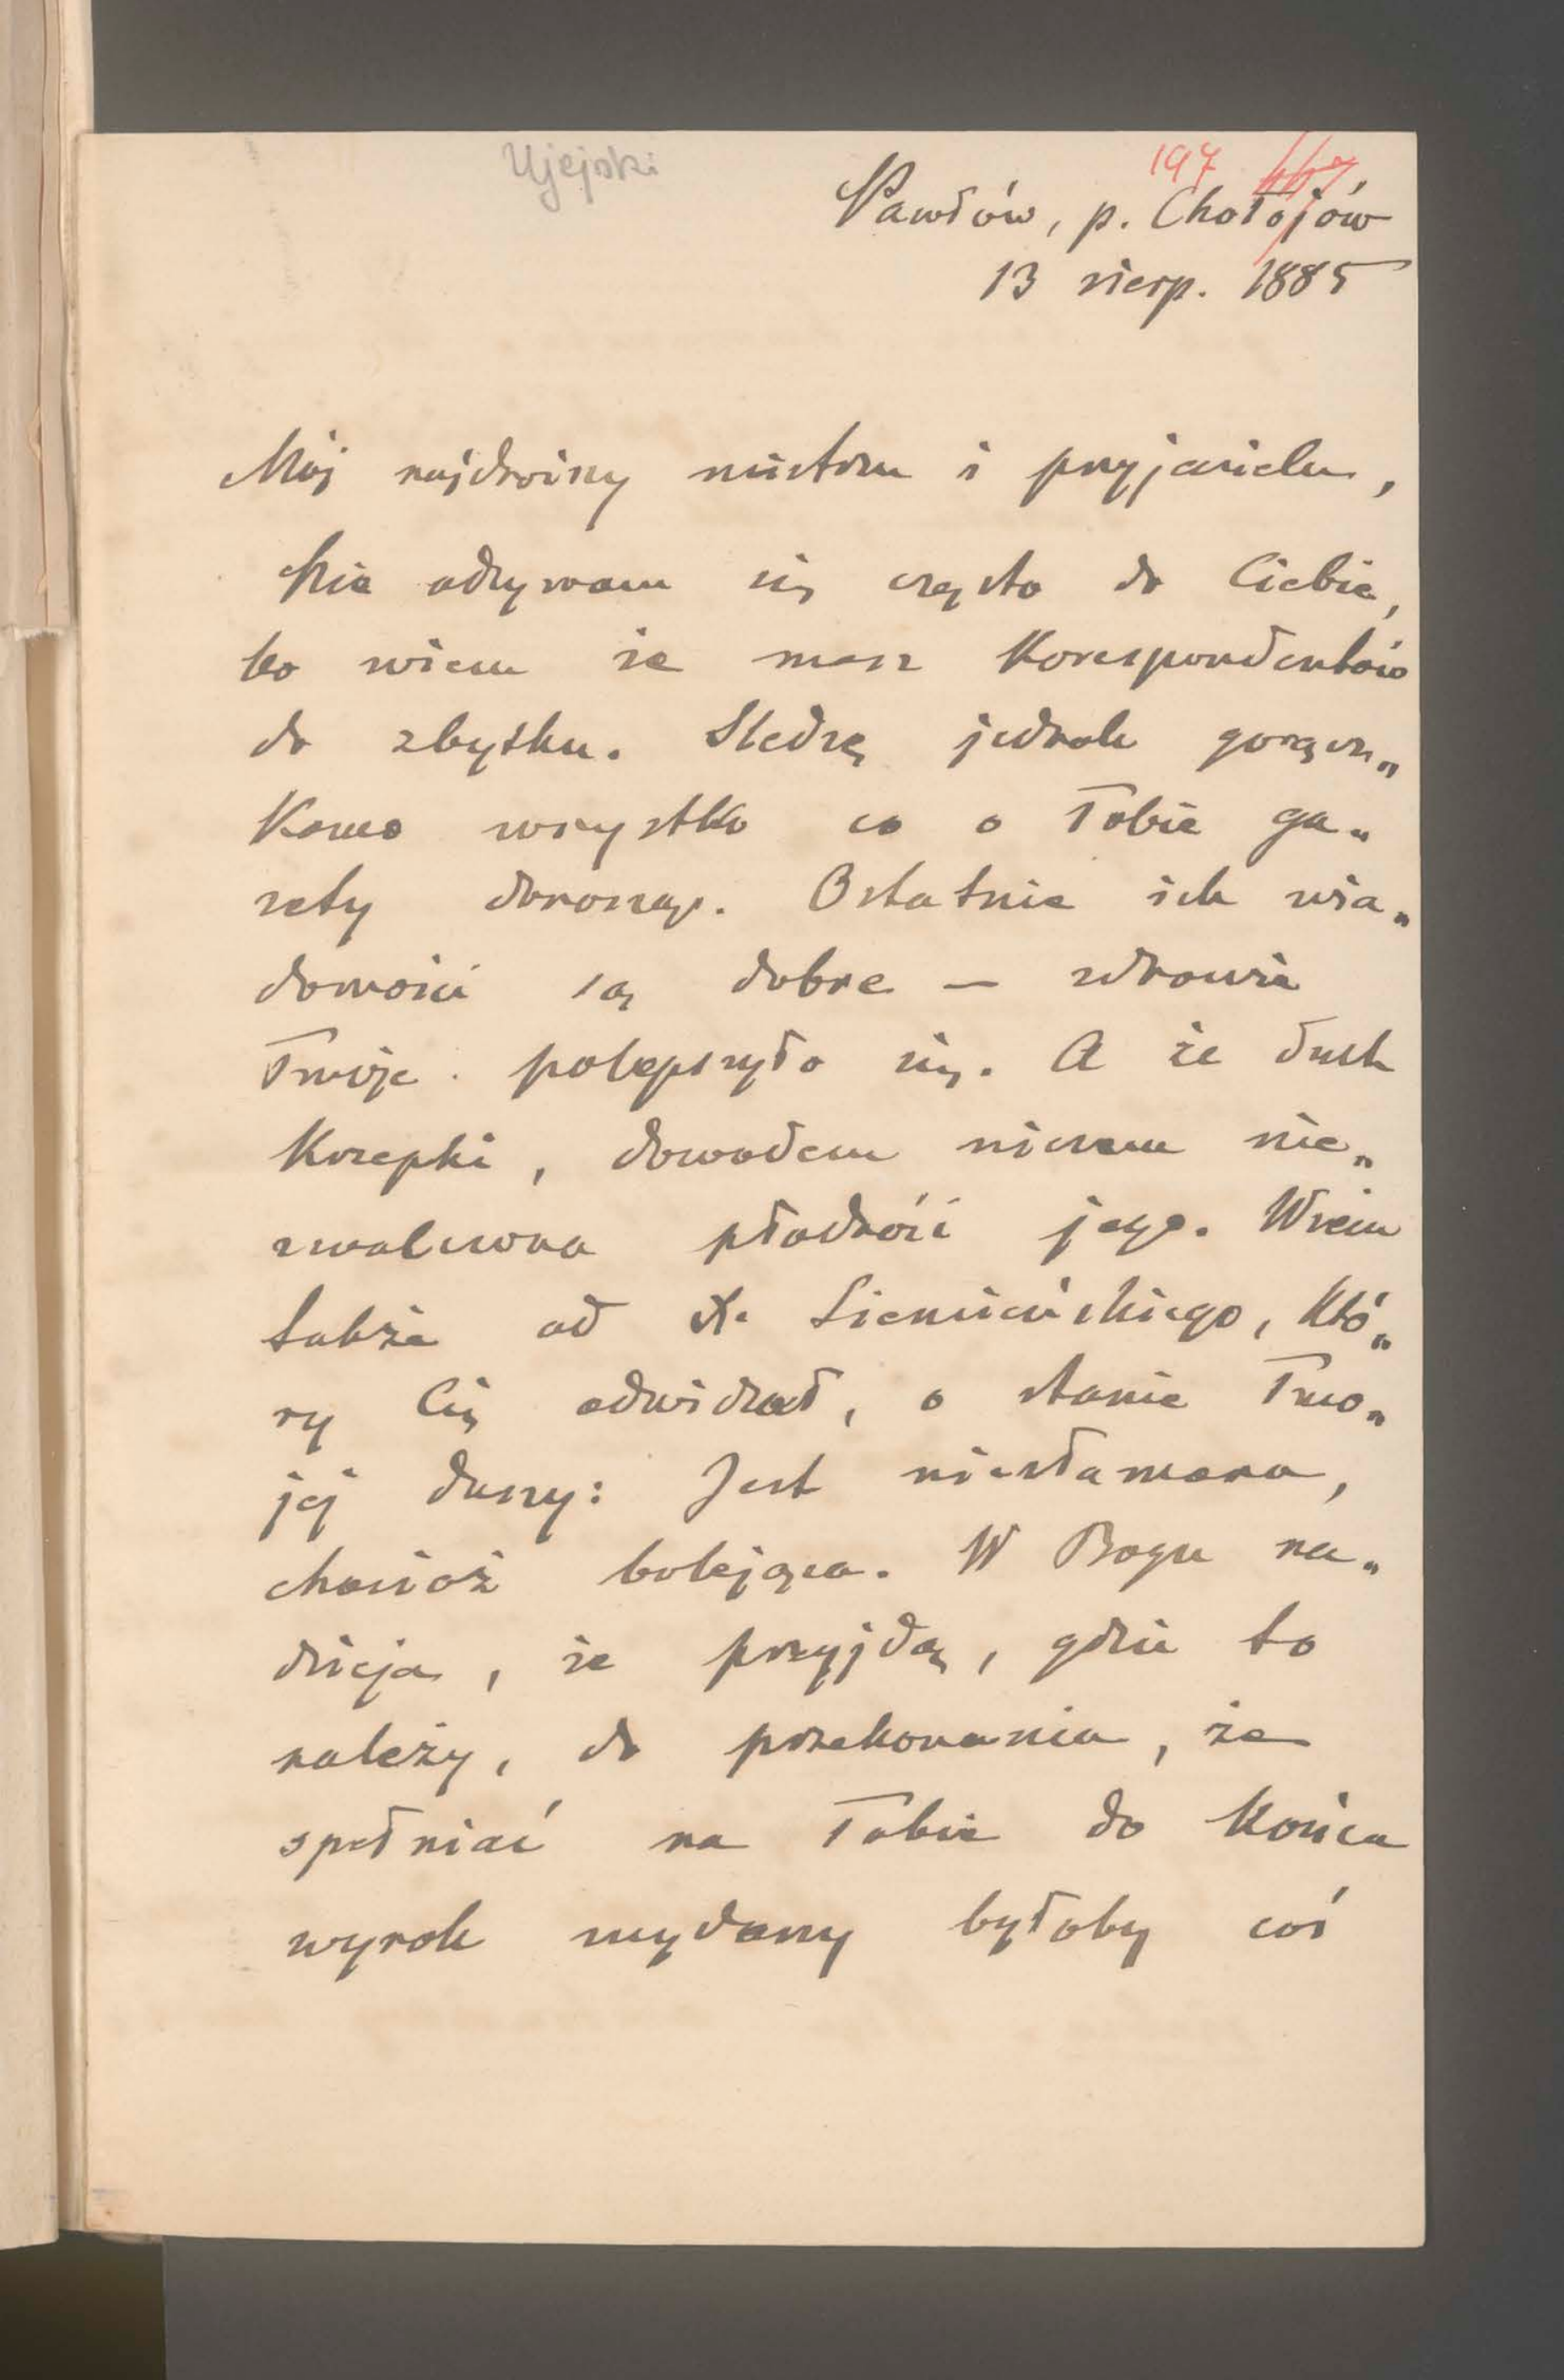 Ujejski
197
Pawłów, p. Chołojów
13 sierp. 1885
Mój najdroższy mistrzu i przyjacielu,
Nie odzywam się często do Ciebie,
bo wiem że masz korespondentów
do zbytku. Śledzę jednak gorącz„
kowo wszystko co o Tobie ga„
zety donoszą. Ostatnie ich wia„
domości są dobre — zdrowie
Twoje polepszyło się. A że duch
krzepki, dowodem niczem nie„
zwalczona płodność jego. Wiem
także od X. Siemieńskiego, któ„
ry Cię odwidzał, o stanie Two„
jej duszy: Jest niezłamana,
chociaż bolejąca. W Bogu na„
dzieja, że przyjdą, gdzie to
należy, do przekonania, że
spełniać na Tobie do końca
wyrok wydany byłoby coś